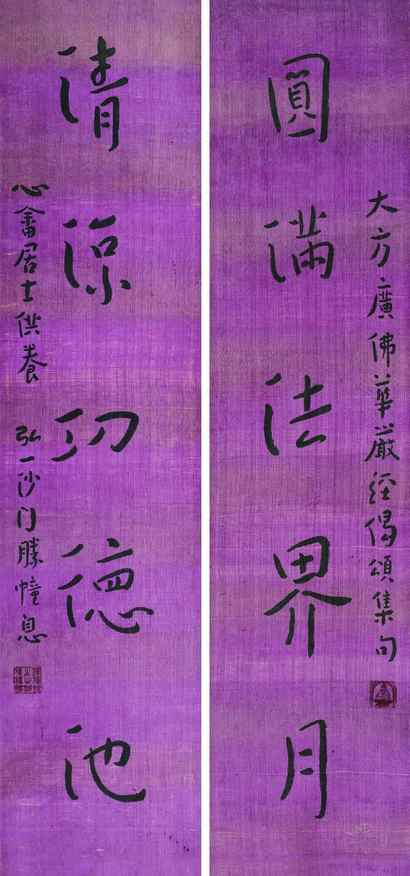 大方廣佛華嚴經偈頌集句
圓滿法界月
清涼功德池
心畬居士供養 弘一沙门勝幢息